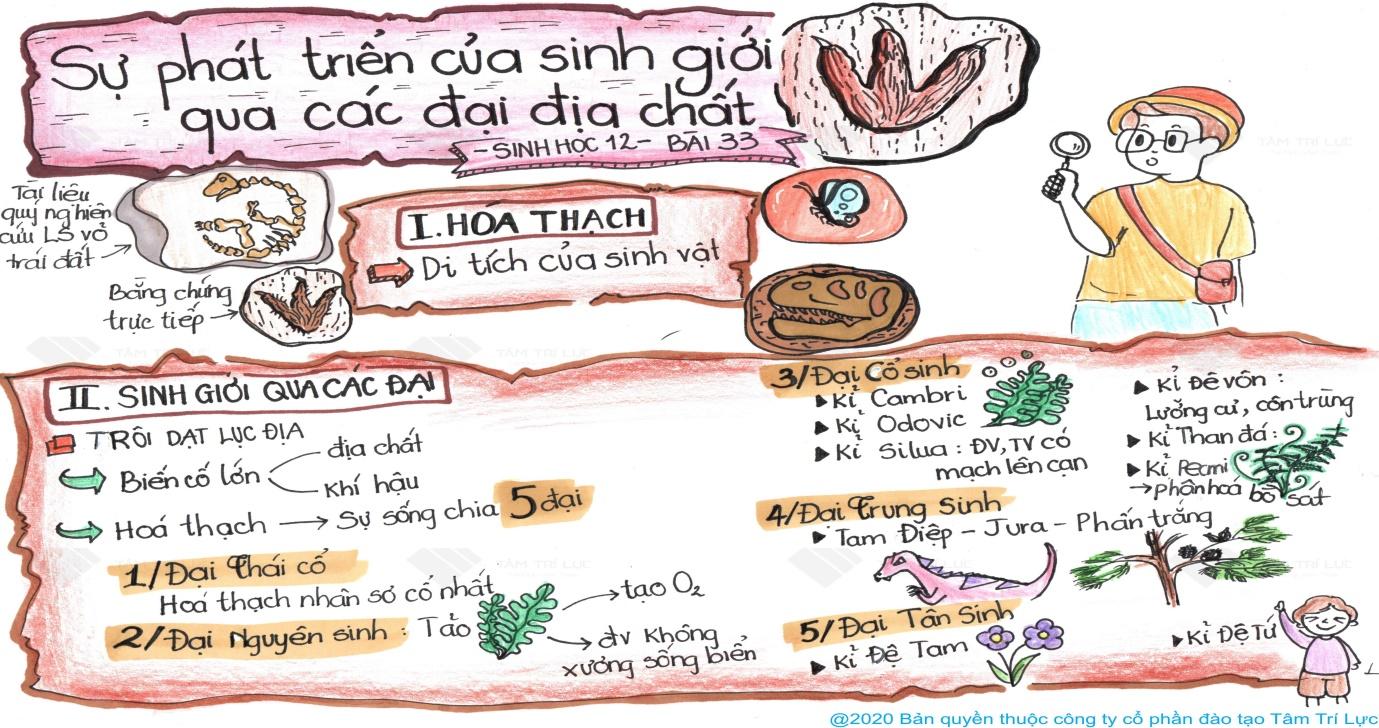 Sự phát triển của sinh giới
qua các đại địa chất
- SINH HỌC 12 - BÀI 33
TÂM TRÍ LỰC
Tài liệu
quý nghiên
cứu LS vỏ
trái đất
Bằng chứng
trực tiếp
I. HÓA THẠCH
Di tích của sinh vật
TÂM TRÍ LỰC
TÂM TRÍ LỰC
II. SINH GIỚI QUA CÁC ĐẠI
TRÔI DẠT LỤC ĐỊA
Biến cố lớn
địa chất
khí hậu
Hoá thạch → Sự sống chia 5 đại
1/ Đại Thái cổ
Hoá thạch nhân sơ cổ nhất
2/ Đại Nguyên sinh : Tảo
→ tạo O₂
→ đv không
xương sống biển
TÂM TRÍ LỰC
3/ Đại Cổ sinh
▶ Kỉ Cambri
▶ Kỉ Odovic
▶ Kỉ Silua : ĐV, TV có
mạch lên cạn
▶ Kỉ Đêvôn :
Lưỡng cư, côn trùng
▶ Kỉ Than đá :
▶ Kỉ Pecmi
→ phân hoá bò sát
4/ Đại Trung Sinh
▶ Tam Điệp - Jura - Phấn trắng
TÂM TRÍ LỰC
5/ Đại Tân Sinh
▶ Kỉ Đệ Tam
▶ Kỉ Đệ Tứ
@2020 Bản quyền thuộc công ty cổ phần đào tạo Tâm Trí Lực